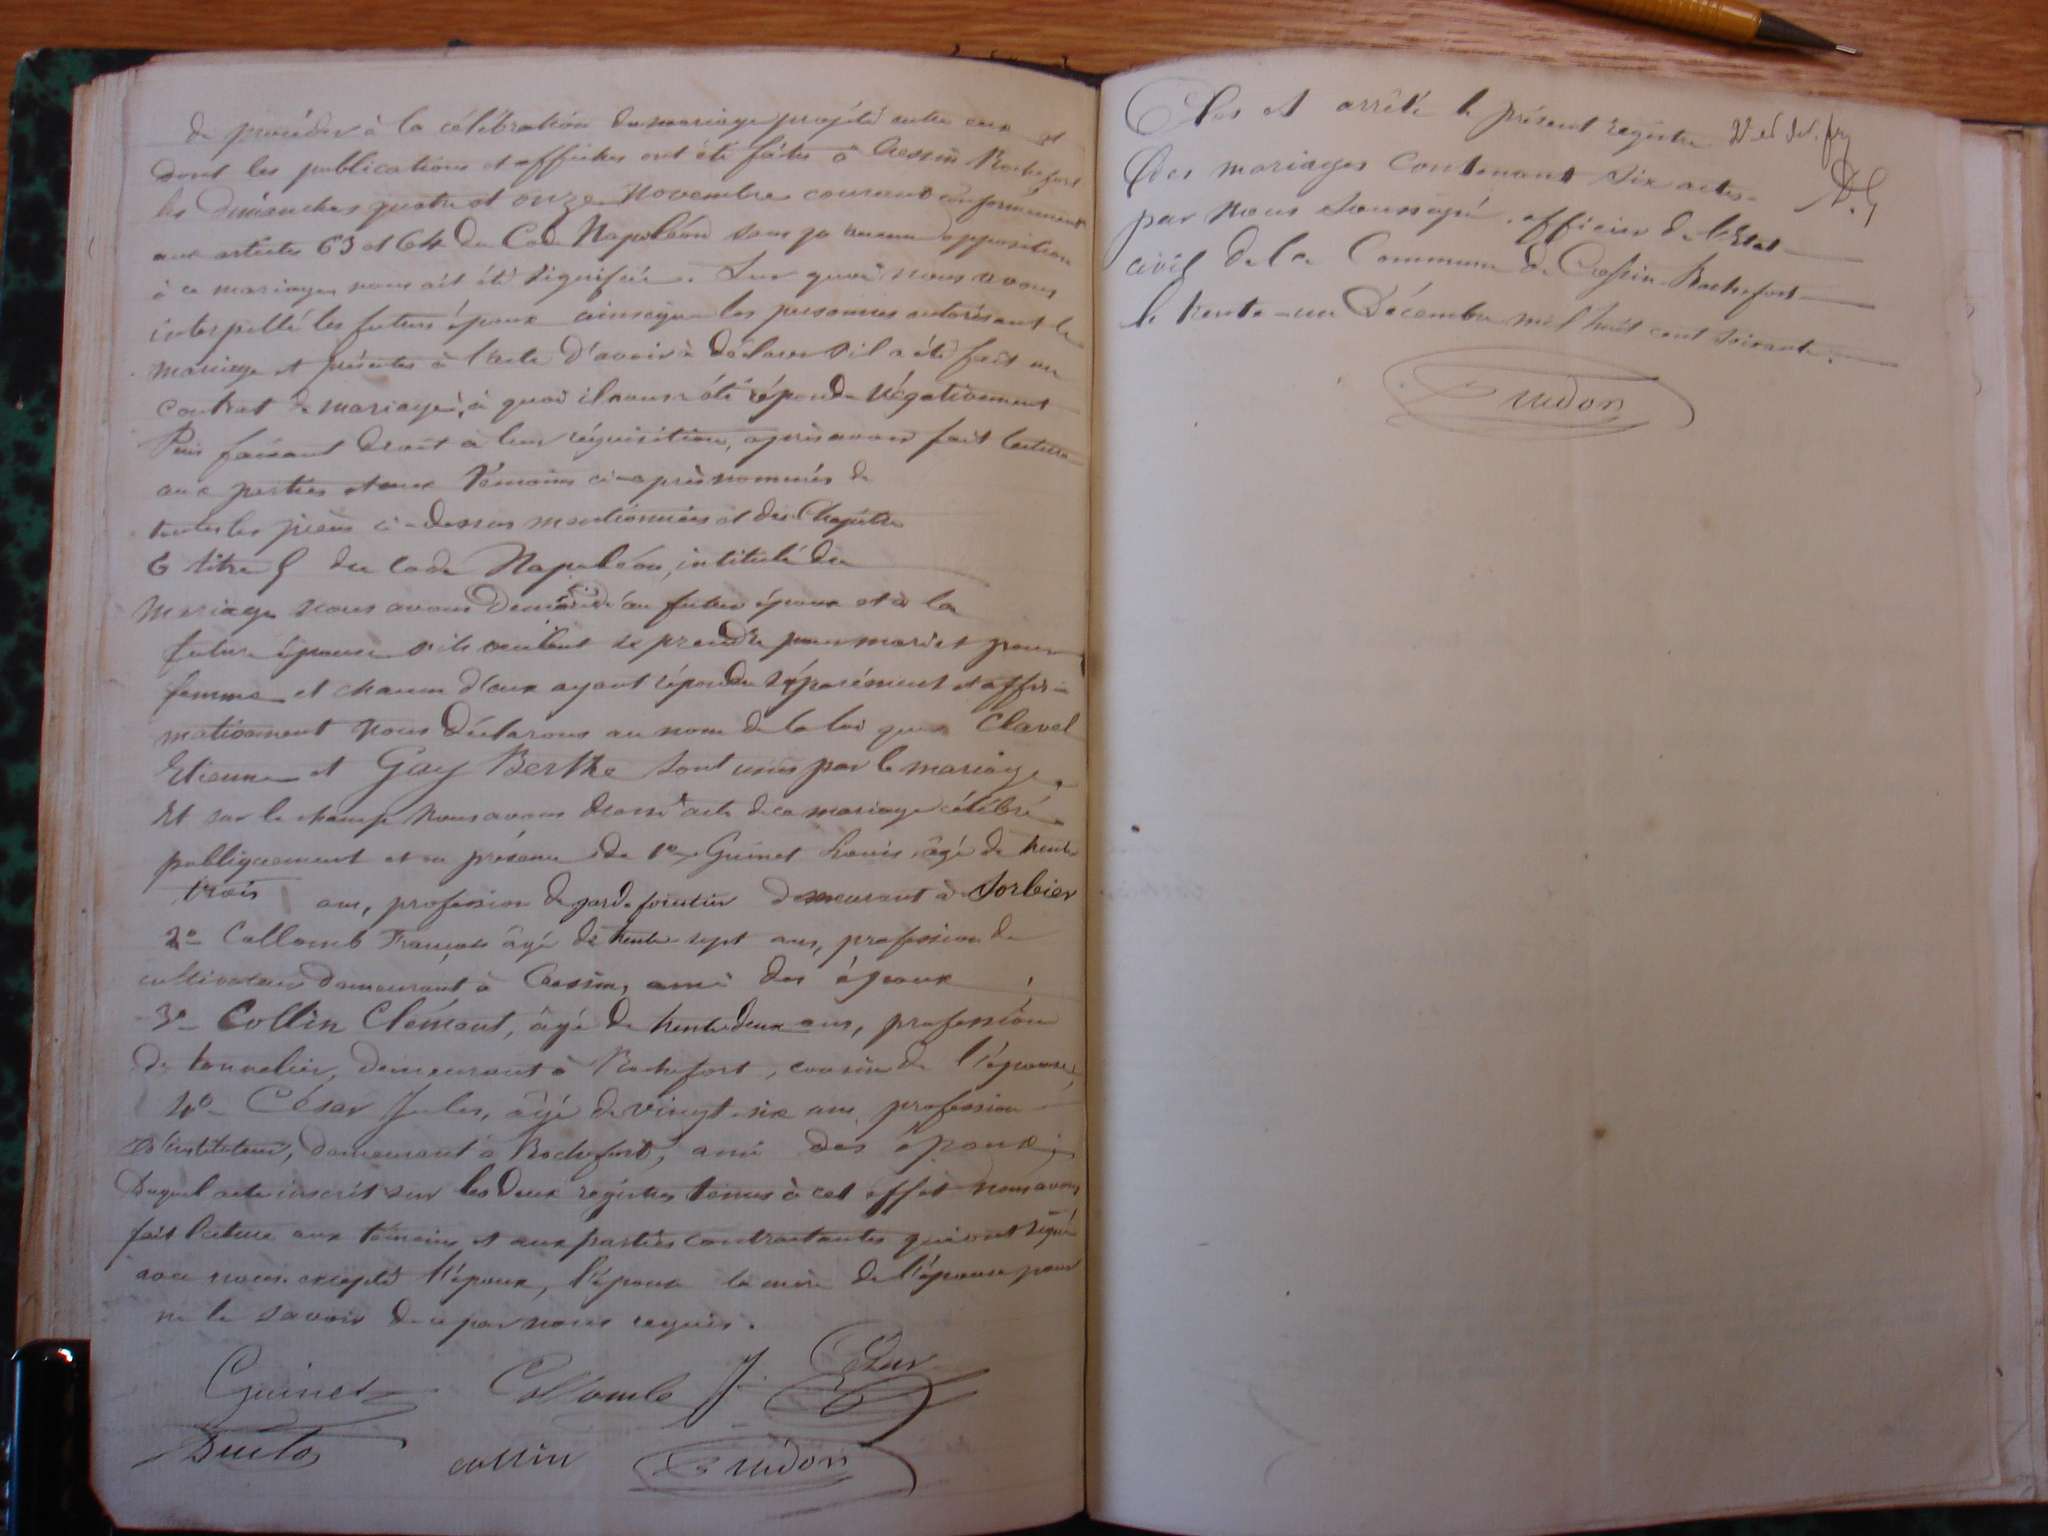 de procéder à la célébration du mariage projeté entre eux et
dont les publications et affiches ont été faites à Cressin Rochefort
les dimanches quatre et onze Novembre courant conformément
aux articles 63 et 64 du Code Napoléon sans qu'aucune opposition
à ce mariage nous ait été signifiée. Sur quoi nous avons
interpellé les futurs époux ainsi que les personnes autorisant le
mariage et présentes à l'acte d'avoir à déclarer s'il a été fait un
contrat de mariage, à quoi il nous a été répondu négativement
Puis faisant droit à leur réquisition, après avoir fait lecture
aux parties et aux témoins ci-après nommés de
toutes les pièces ci-dessus mentionnées et du Chapitre
6 titre 5 du Code Napoléon, intitulé du
Mariage nous avons demandé au futur époux et à la
future épouse s'ils veulent se prendre pour mari et pour
femme et chacun d'eux ayant répondu séparément et affir-
mativement Nous déclarons au nom de la loi que Clavel
Etienne et Gay Berthe sont unis par le mariage.
Et sur le champ nous avons dressé acte de ce mariage célébré
publiquement et en présence de 1º Guinet Louis, âgé de trente
trois ans, profession de garde forestier demeurant à Sorbier
2º Collomb François âgé de trente sept ans, profession de
cultivateur demeurant à Cressin, ami des époux
3º Collin Clément, âgé de trente deux ans, profession
de tonnelier, demeurant à Rochefort, cousin de l'épouse,
4º César Jules, âgé de vingt-six ans profession
d'instituteur, demeurant à Rochefort, ami des époux;
Duquel acte inscrit sur les deux registres tenus à cet effet nous avons
fait lecture aux témoins et aux parties contractantes qui ont signé
avec nous excepté l'époux, l'épouse la mère de l'épouse pour
ne le savoir de ce par nous requis.
Guinet Collomb J. César
Duclos collin Prudon
Clos et arrêté le présent registre
Des mariages contenant six actes
par Nous soussigné, officier de l'Etat
civil de la Commune de Cressin-Rochefort
le trente-un Décembre mil huit cent soixante.
Prudon